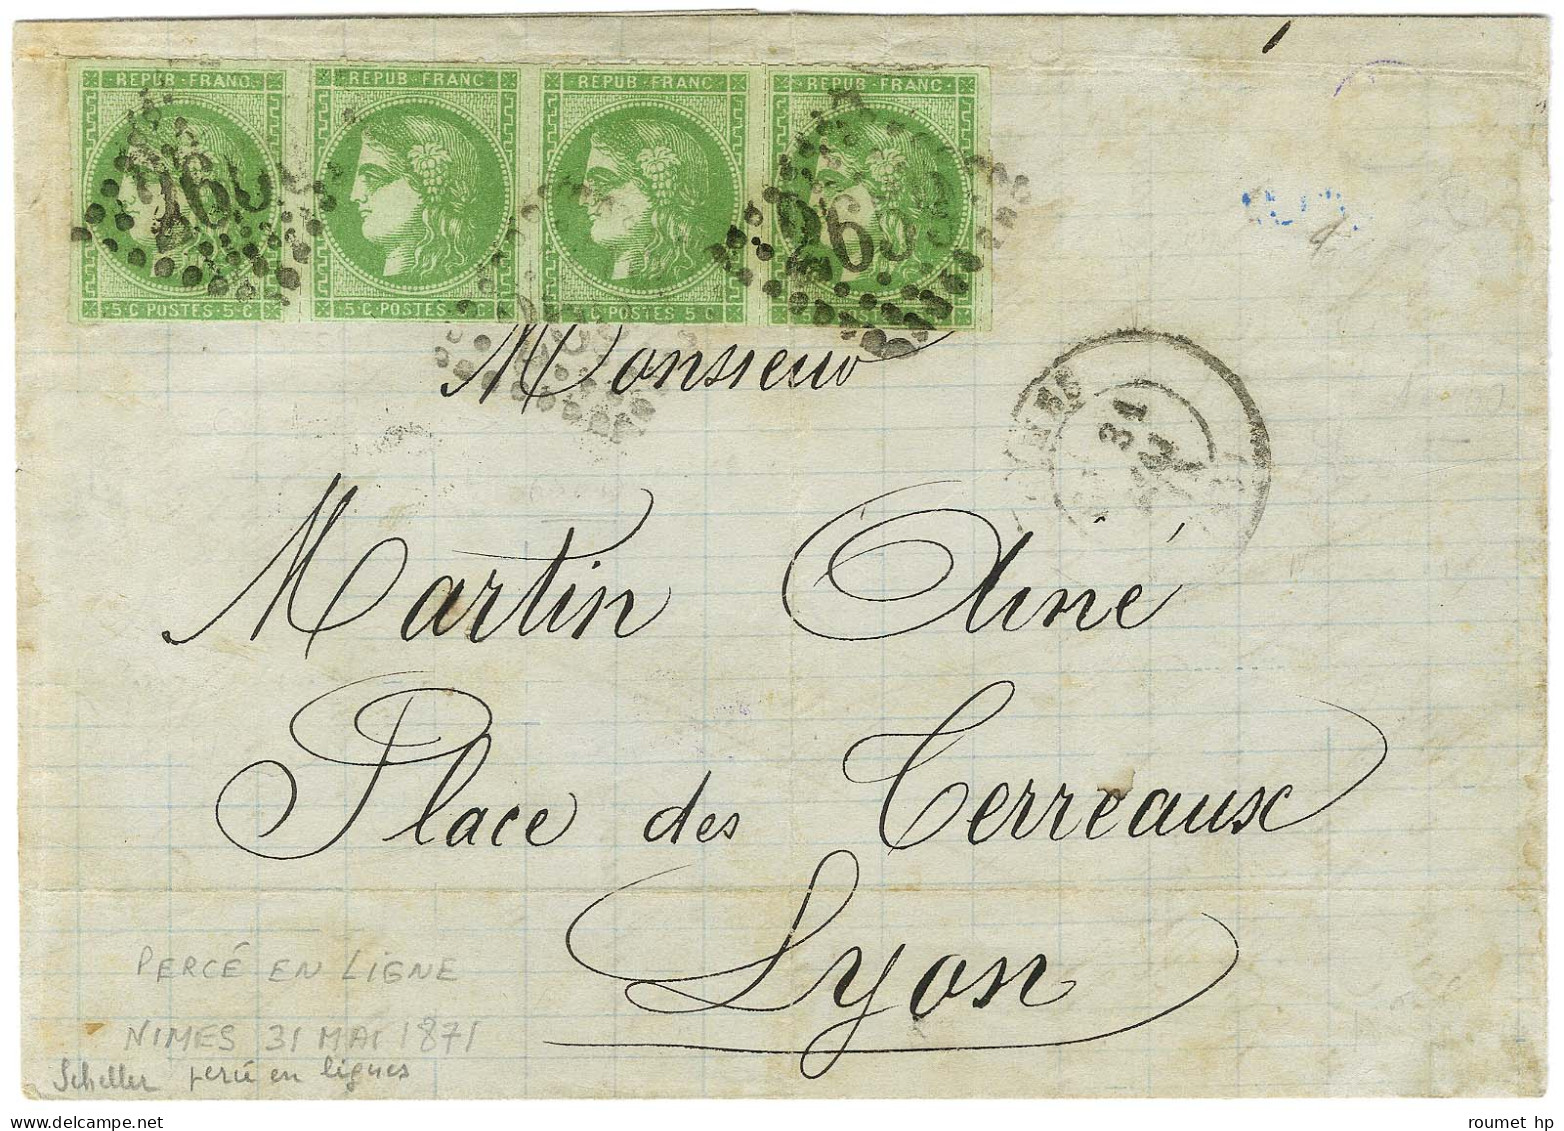 REPUB·FRANC· REPUB·FRANC REPUB·FRANC· REPUB·FRANC·
5·C·POSTES·5·C 5·C·POSTES·5·C C·POSTES·5·C
Monsieur
31
Martin Ainé
Place des Terreaux
Lyon
PERCÉ EN LIGNE
NIMES 31 MAI 1871
Scheller percé en lignes
roumet hp